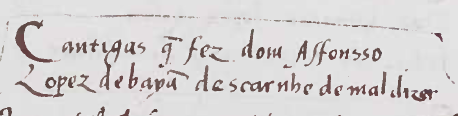 Cantigas q̃ fez dom Affonsso
Lopez de bayã descarnhe de mal dizer